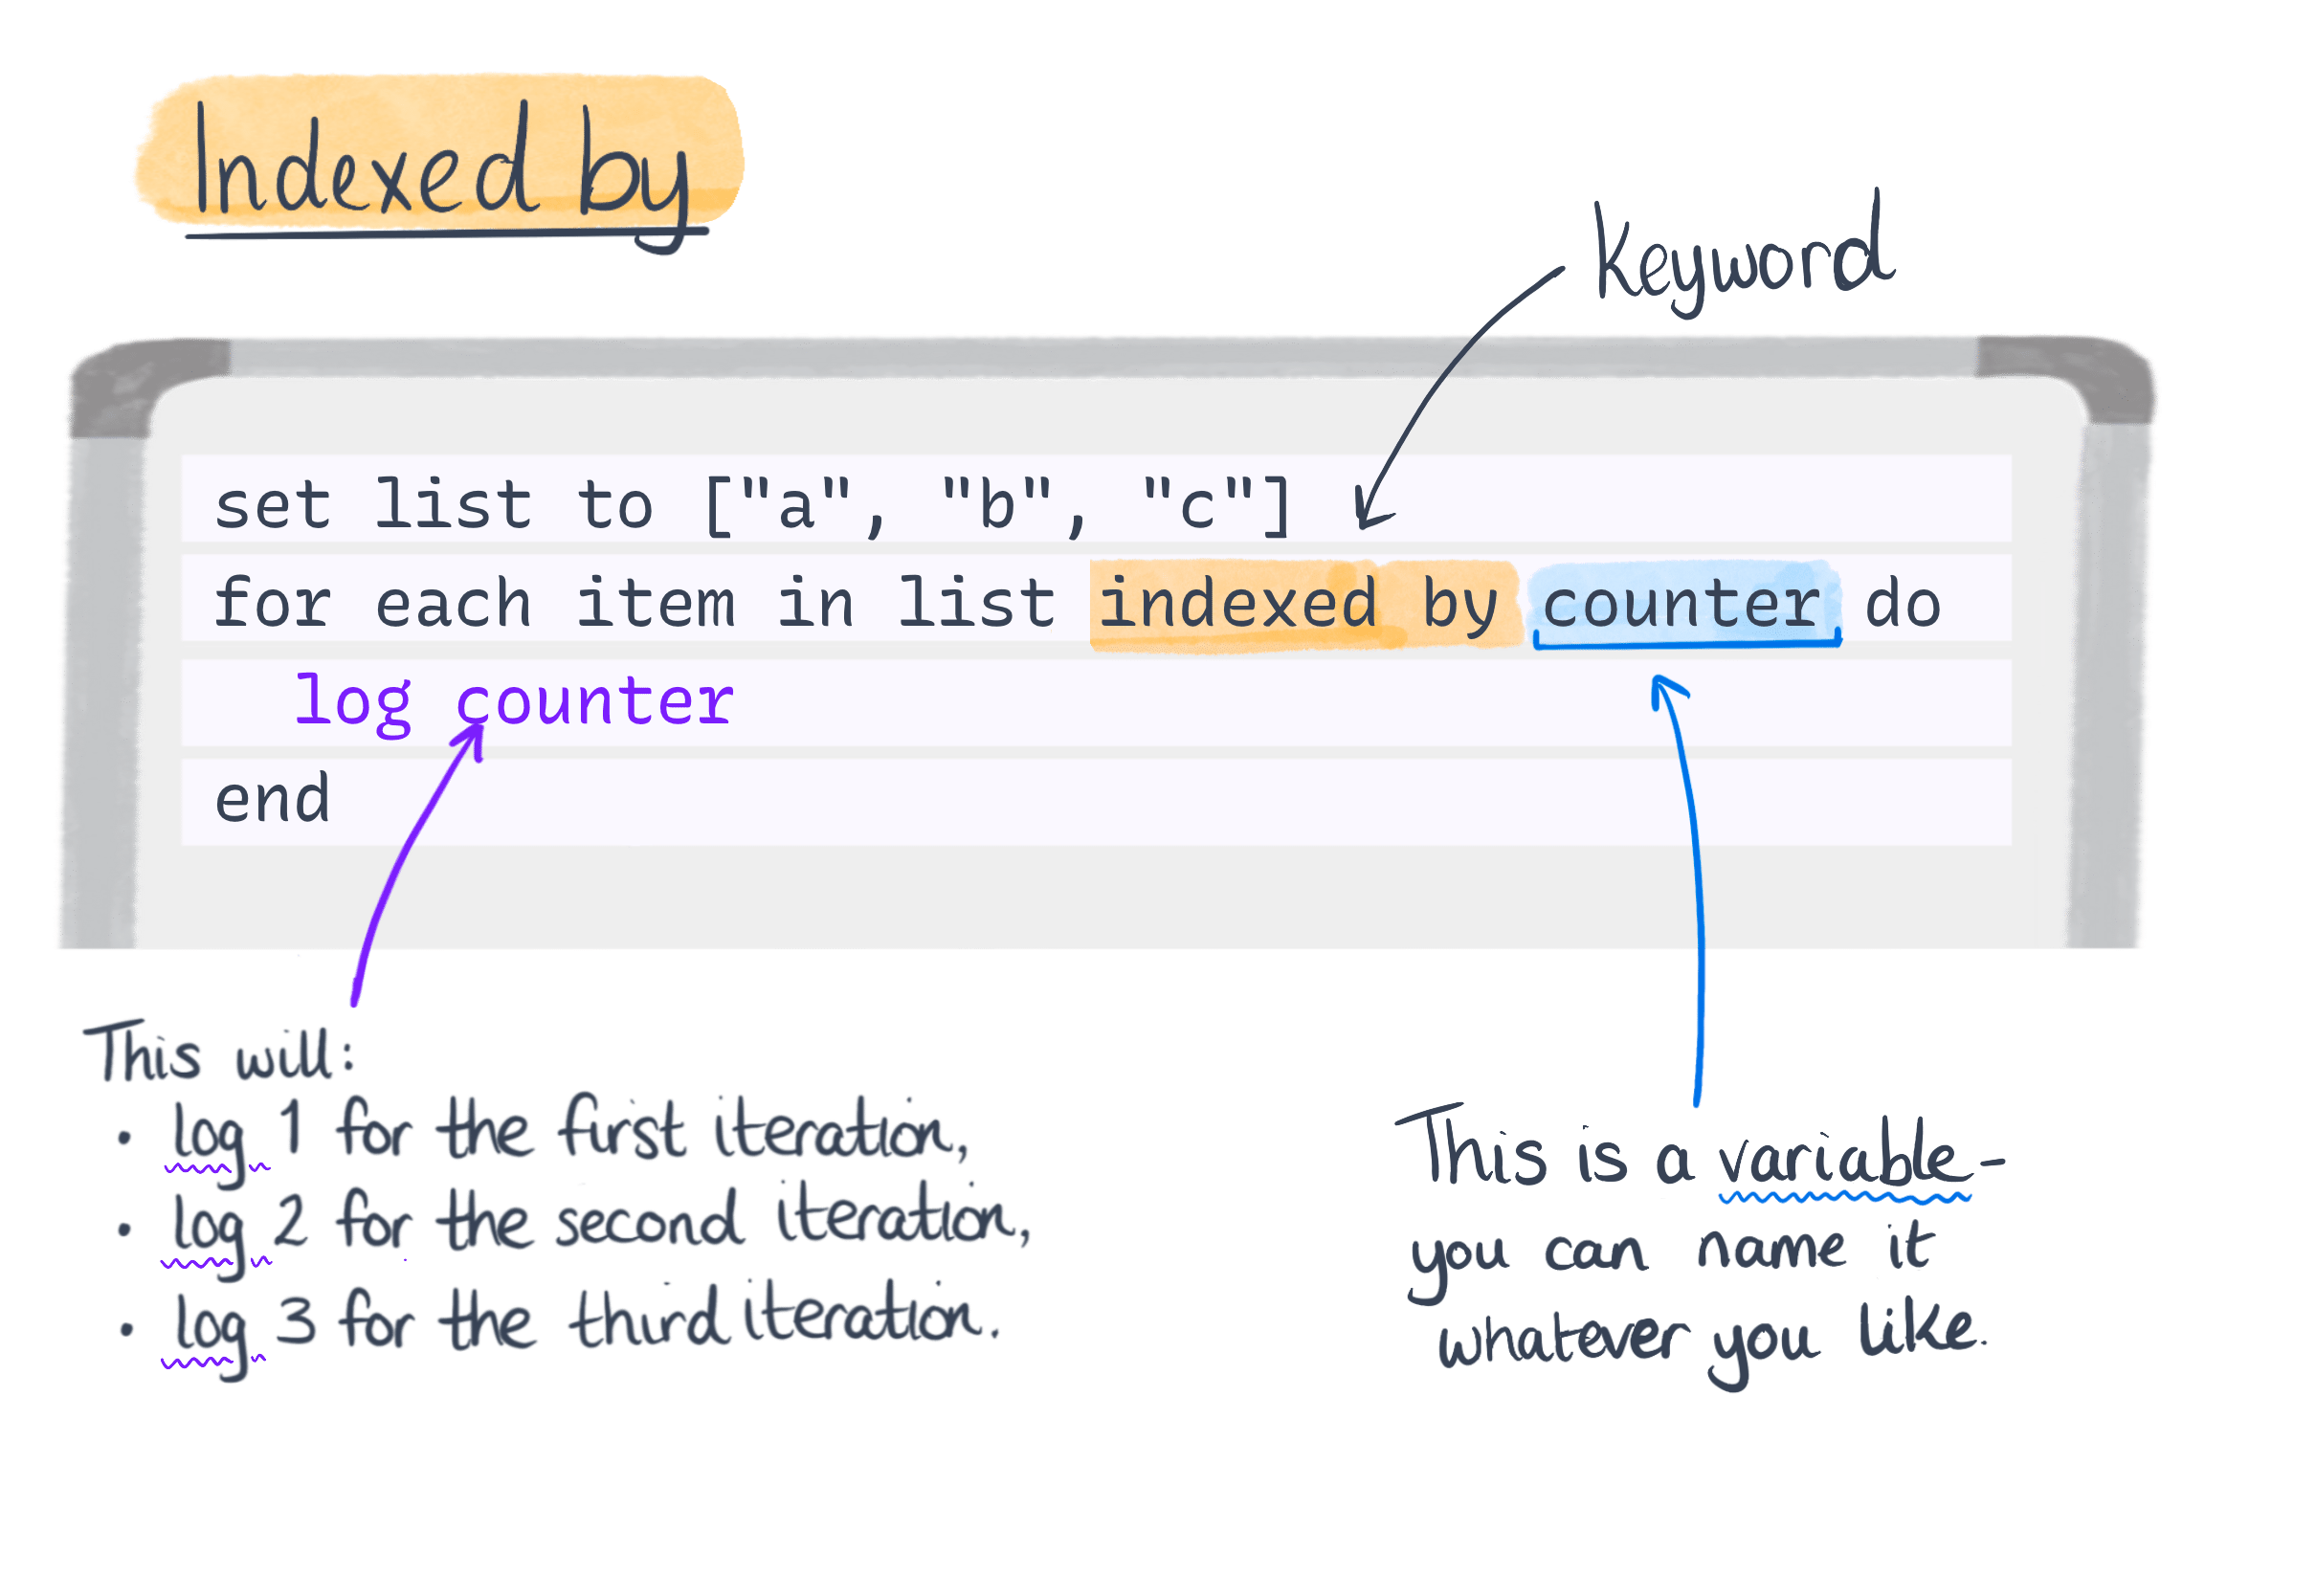 Indexed by
Keyword
set list to ["a", "b", "c"]
for each item in list indexed by counter do
  log counter
end
This will:
• log 1 for the first iteration,
• log 2 for the second iteration,
• log 3 for the third iteration.
This is a variable-
you can name it
whatever you like.